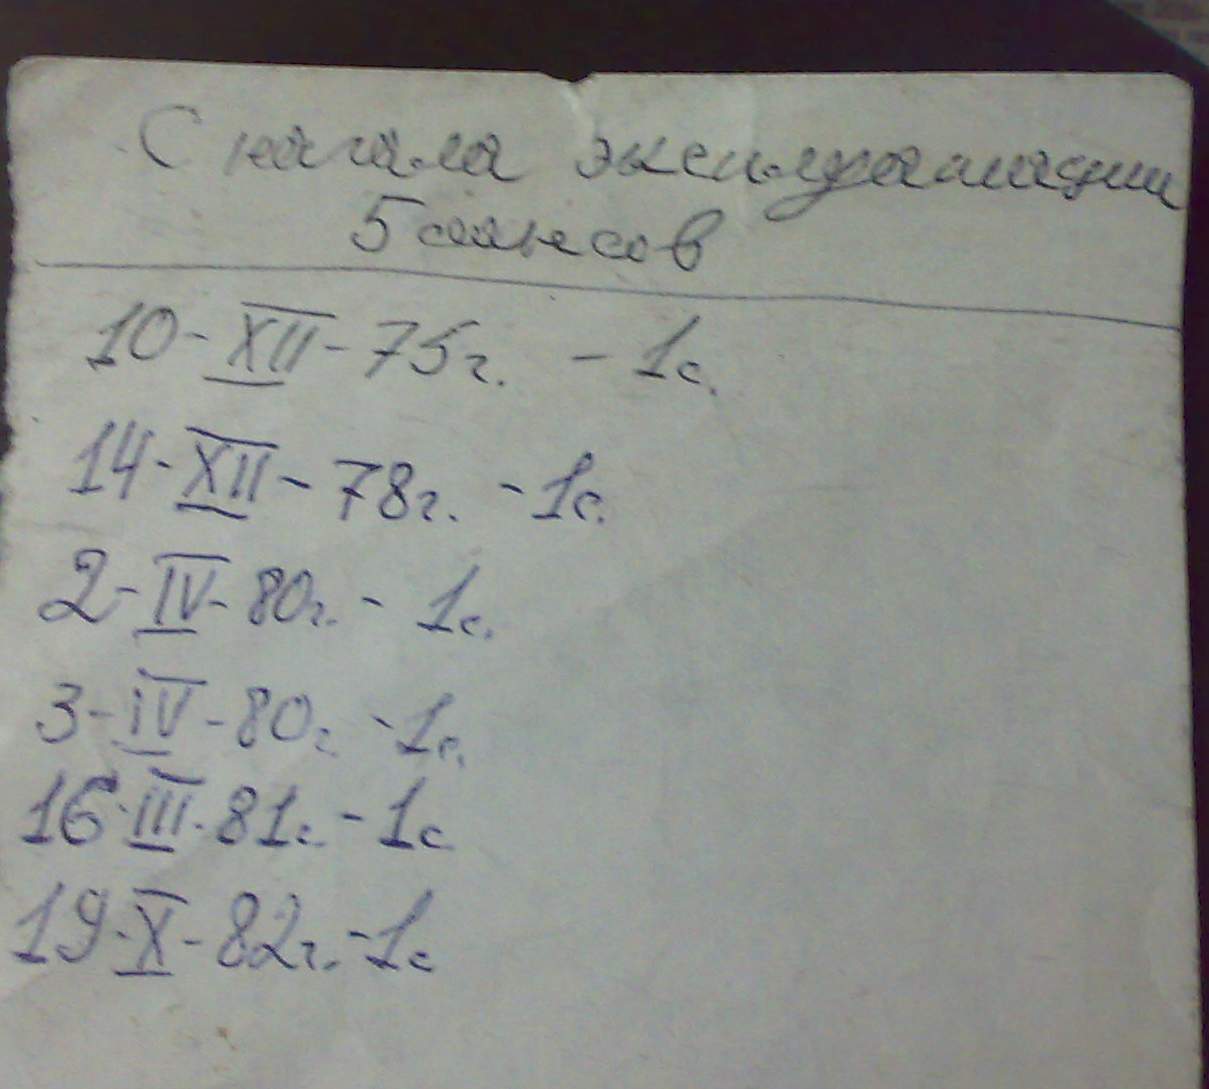 С начала эксплуатации
5 сеансов
10-XII-75г. - 1с.
14-XII-78г. - 1с.
2-IV-80г. - 1с.
3-IV-80г. - 1с.
16-III-81г. - 1с
19-X-82г. - 1с